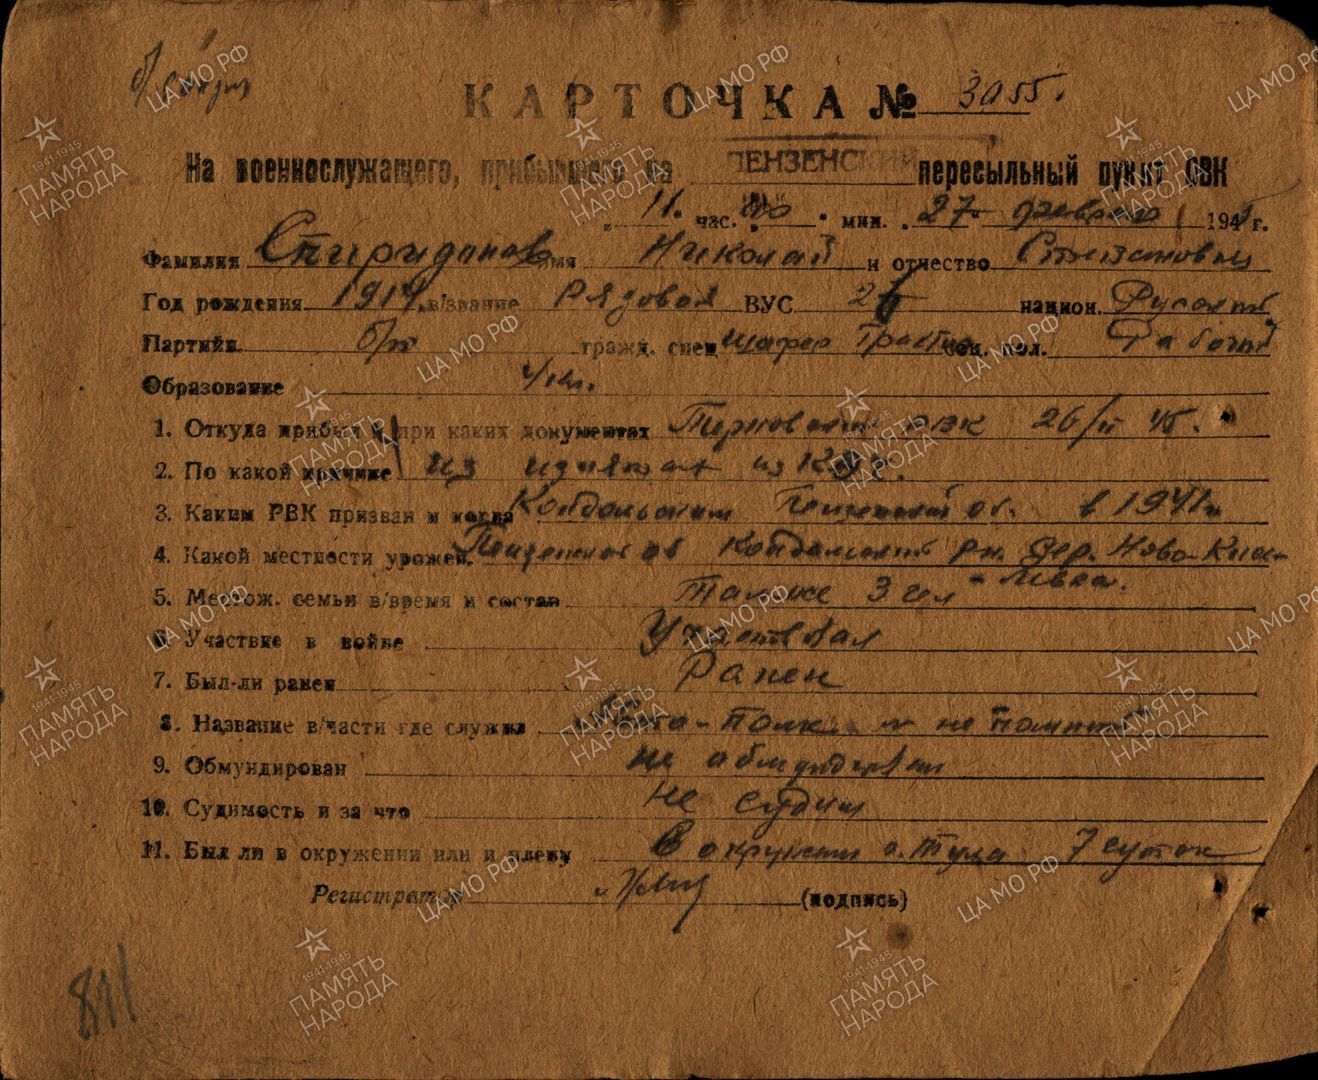 КАРТОЧКА № 3055.
На военнослужащего, прибывшего на ПЕНЗЕНСКИЙ пересыльный пункт СВК
11. час. 00 мин. 27 февраля 1945 г.
Фамилия Спиридонов имя Николай и отчество Степанович
Год рождения 1914 в/звание Рядовой ВУС национ. Русский
Партийн. б/п гражд. спец шофер соц. пол. Рабочий
Образование 4 кл.
1. Откуда прибыл и при каких документах РВК 26/II 45.
2. По какой причине из
3. Каким РВК призван и когда Кондольским Пензенской об. в 1941 г
4. Какой местности урожен. Пензенской об Кондольский рн. дер. Ново-
5. Местож. семьи в/время и состав Там же 3 чел
6. Участие в войне Участвовал
7. Был-ли ранен Ранен
8. Название в/части где служил полк не помнит
9. Обмундирован не обмундирован
10. Судимость и за что не судим
11. Был ли в окружении или в плену В окружении г. Тула 7 суток
Регистратор (подпись)
811
ЦА МО РФ
1941-1945
ПАМЯТЬ
НАРОДА